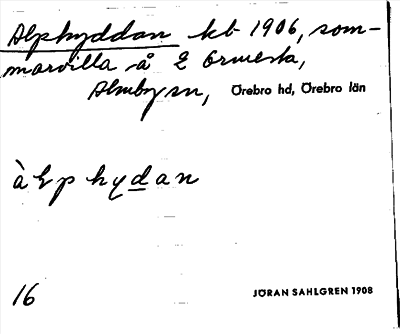 Alphyddan kb 1906, som-
marvilla å 2 Ormesta,
Almby sn, Örebro hd, Örebro län
àlp hydan
16 JÖRAN SAHLGREN 1908